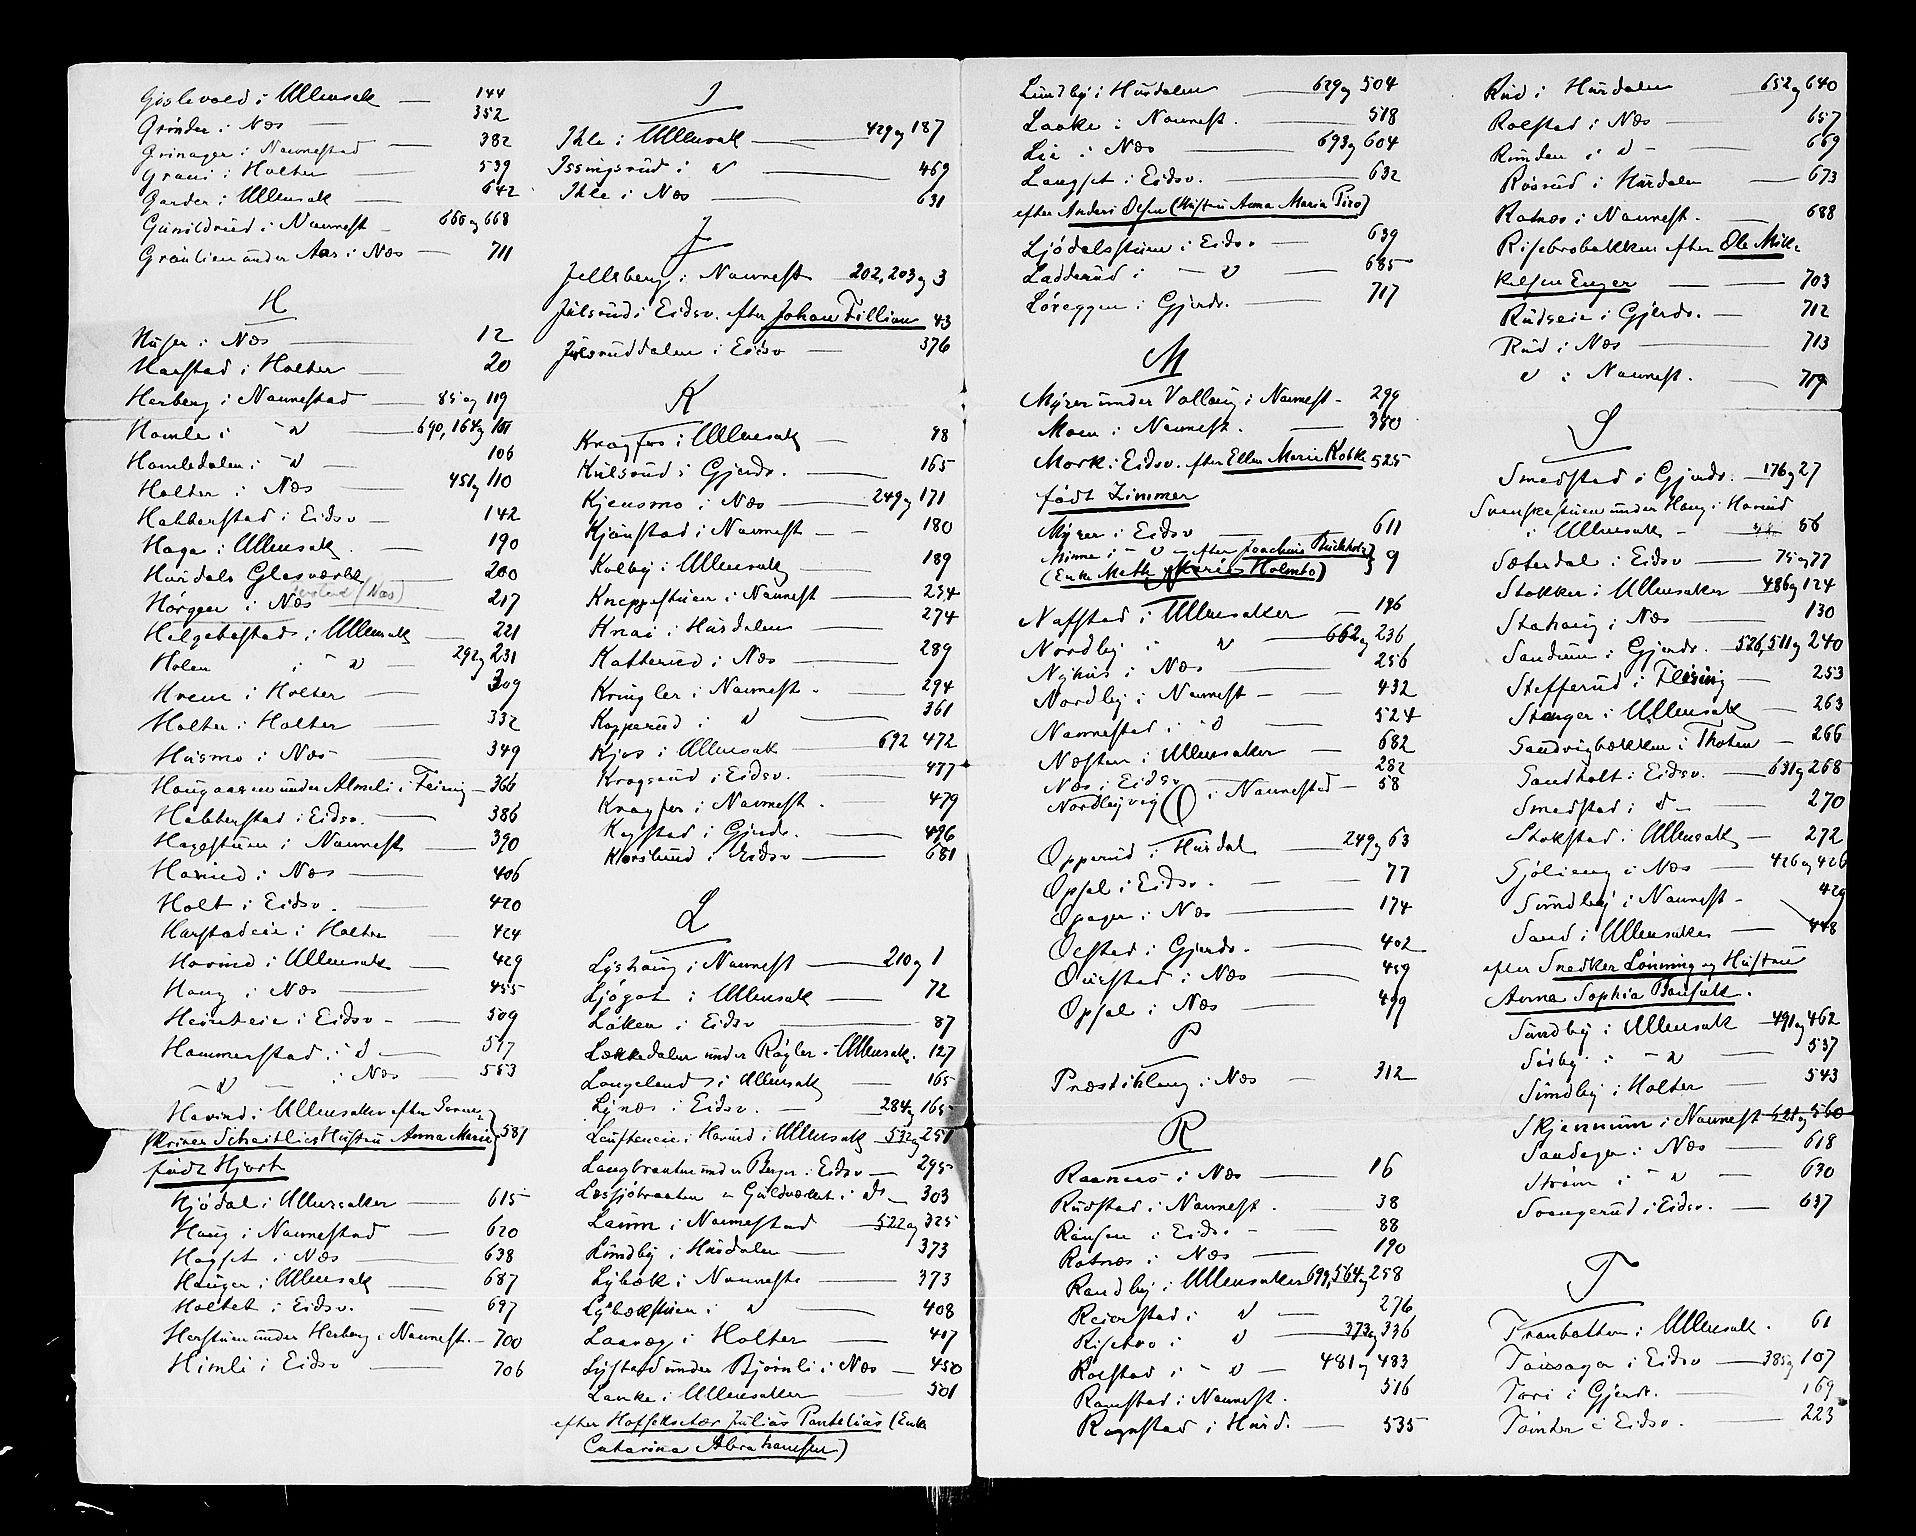 Gislevold i Ullensak — 144
Grönder i Næs — 352
Grinager i Naunestad — 382
Grani i Holter — 539
Garder i Ullensak — 642
Gunildrud i Naunest — 666 og 668
Gråulien under Aas i Næs — 711
H
Huser i Næs — 12
Harstad i Holter — 20
Herberg i Naunestad — 85 og 119
Homle i " — 690, 164 og 101
Homledalen i " — 106
Holter i Næs — 451 og 110
Habberstad i Eidsv — 142
Haga i Ullensak. — 190
Hurdals Glasværk — 200
Hörgen i Næs — 217
Helgebostad i Ullensak — 221
Holen i " — 292 og 231
Hrene i Holter — 309
Holter i Holter — 332
Husmo i Næs — 349
Haugaasen under Almeli i Feiring — 366
Habberstad i Eidsv. — 386
Hagestuen i Naunest — 390
Hovind i Næs — 406
Holt i Eidsv. — 420
Harstadeie i Holter — 424
Hovind i Ullensak — 429
Haug i Næs — 455
Heinteie i Eidsv — 509
Hammerstad i " — 517
" i Næs — 553
Hovind i Ullensaker efter Soren-
skriver Scheitlies Hustru Anna Marie } 581
födt Hjort
Hjödal i Ullensaker — 615
Haug i Naunestad — 620
Hagset i Næs — 638
Hauger i Ullensak — 687
Holtet i Eidsv. — 697
Herstuen under Herberg i Naunest. — 700
Himli i Eidsv — 706
I
Ihle i Ullensak — 429 og 187
Issingsrud i " — 469
Ihle i Næs — 631
J
Jellsberg i Naunest — 202, 203 og 3
Julsrud i Eidsv. efter Johan Fillian 43
Julsruddalen i Eidsv — 376
K
Kragfos i Ullensak — 98
Kulsrud i Gjerdr. — 165
Kjensmo i Næs — 249 og 171
Kjönstad i Naunest — 180
Kolby i Ullensak — 189
Kneppestuen i Naunest — 254
Knai i Hurdalen — 274
Katterud i Næs — 289
Kringler i Naunest — 294
Kopperud i " — 361
Kjos i Ullensak — 692 472
Krogsrud i Eidsv. — 477
Knagfos i Naunest — 479
Kogstad i Gjerdr. — 496
Korslund i Eidsv — 681
L
Lyshaug i Naunest — 210 og 1
Ljögot i Ullensak — 72
Låken i Eidsv — 87
Løkkedalen under Rögler i Ullensak. 127
Langeland i Ullensak — 165
Lynæs i Eidsv. — 284 og 165
Lensteneie i Hovind i Ullensak 532 og 251
Langbraaten under Berger i Eidsv — 295
Læssjöbraaten " Guldværket i do — 303
Laum i Naunestad — 522 og 325
Lundby i Hurdalen — 373
Lybæk i Naunest — 373
Lybækstuen i " — 408
Laaveg i Holter — 417
Lystad under Björnli i Næs — 450
Lanke i Ullensaker — 501
efter Hofsekretær Julius Pantelius (Enke
Catarina Abrahamsen)
Lundby i Hurdalen — 629 og 504
Laake i Naunest. — 518
Lie i Næs — 693 og 604
Langset i Eidsv. — 632
efter Anders Olsen (Hustru Anna Maria Piro)
Ljödalsstuen i Eidsv — 639
Ladderud i " — 685
Löreggen i Gjerdr. — 717
M
Myrer under Vollaug i Naunest — 299
Moen i Naunest. — 380
Mork i Eidsv. efter Ellen Marie Kolk 525
födt Zimmer
Myrer i Eidsv — 611
Minne i " efter Joachim Buckholz
(Enke Mette Marie Holmbo) } 9
Nafstad i Ullensaker — 196
Nordby i " — 662 og 236
Nyhus i Næs — 256
Nordby i Naunest — 432
Naunestad i " — 524
Næsten i Ullensaker — 682
Næs i Eidsv — 282
Nordbyvig i Naunestad — 58
O
Opperud i Hurdal — 249 og 63
Opsal i Eidsv. — 77
Opager i Næs — 174
Oestad i Gjerdr. — 402
Ouestad i Næs — 459
Opsal i Næs — 499
P
Præstiklaug i Næs — 312
R
Raanaas i Næs — 16
Rudstad i Naunest. — 38
Rånsen i Eidsv — 88
Rotnæs i Næs — 190
Randby i Ullensaker 699, 564 og 258
Reierstad i " — 276
Risebro i " — 373 og 336
Rolstad i " — 481 og 483
Ramstad i Naunest. 516
Rognstad i Hurd. — 535
Rud i Hurdalen — 652 og 640
Rolstad i Næs — 657
Runden i " — 669
Rosrud i Hurdalen — 673
Rotnæs i Naunest. — 688
Risebrobakken efter Ole Mik-
kelsen Enger — 703
Rudseie i Gjerdr. — 712
Rud i Næs — 713
" i Naunest. — 719
S
Smedstad i Gjerdr. — 176 og 27
Svenskestuen under Haug i Hovind
i Ullensak — 56
Sæterdal i Eidsv — 75 og 77
Stokker i Ullensaker — 486 og 124
Stohaug i Næs — 130
Sandum i Gjerdr. 526, 511 og 240
Stefferud i Feiring — 253
Stenger i Ullensak — 263
Sandvigbakken i Thoten — 266
Sandholt i Eidsv. — 631 og 268
Smedstad i " — 270
Stokstad i Ullensak — 272
Sjölieng i Næs — 426 og 426
Sundby i Naunest — 429
Sand i Ullensaker — 448
efter Snedker Lönning og Hustru
Anna Sophia Bonsak.
Sundby i Ullensak — 491 og 462
Sörby i " — 537
Sundby i Holter — 543
Skjennum i Naunest 521 og 560
Sandager i Næs — 618
Ström i " — 630
Svangerud i Eidsv. — 637
T
Tranbatten i Ullensak. 61
Toinsager i Eidsv — 385 og 107
Tori i Gjerdr. — 169
Tömter i Eidsv. — 223